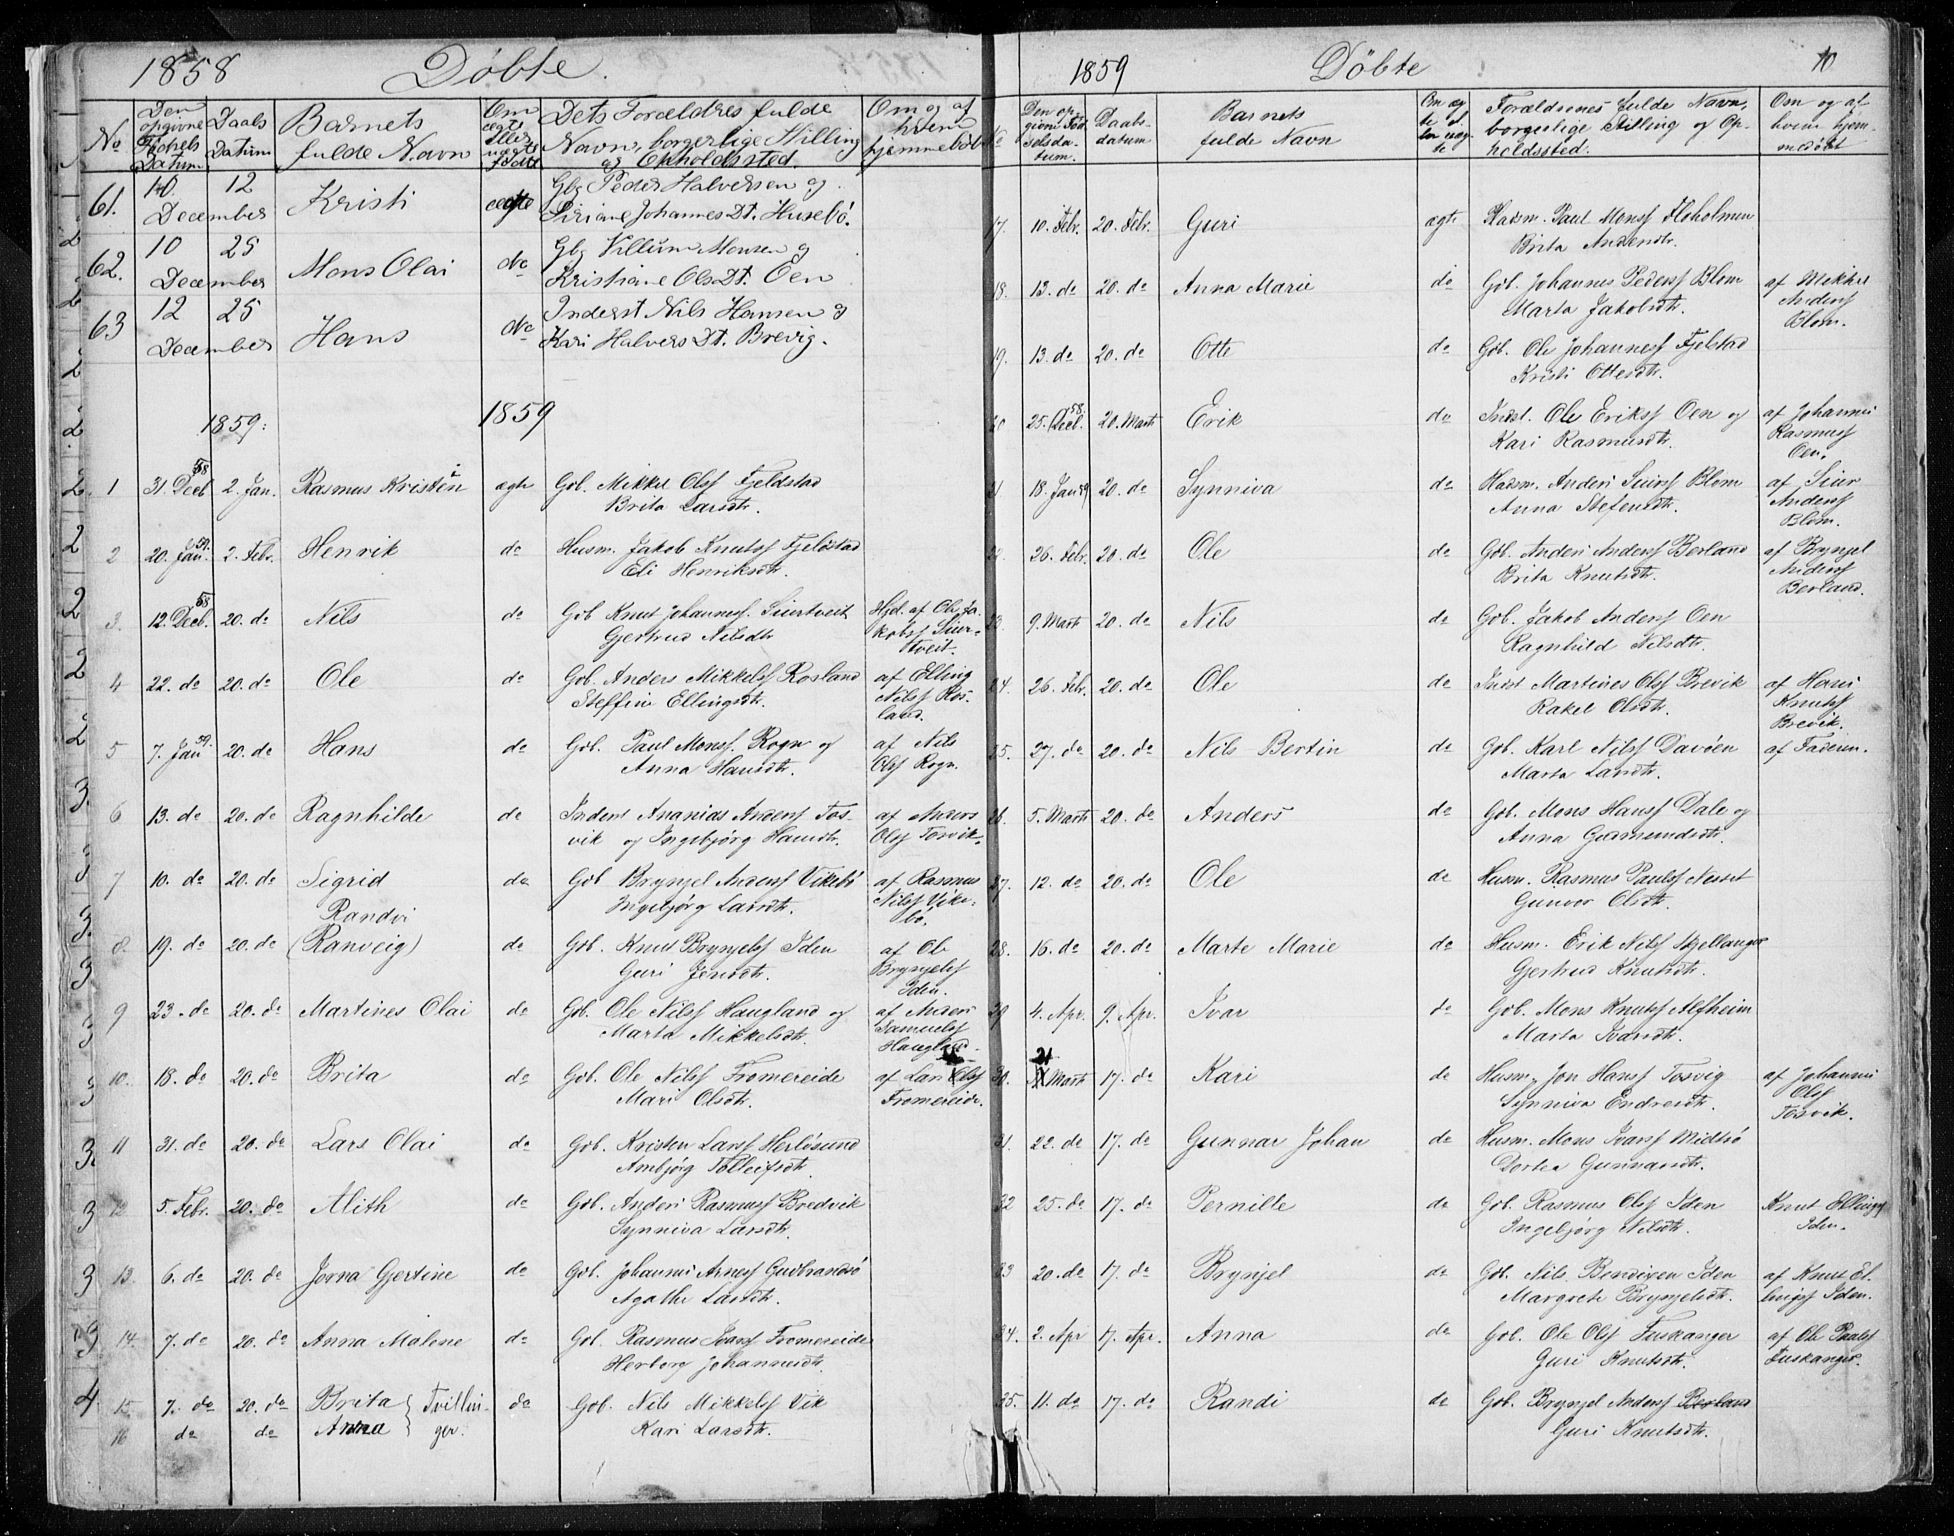 1858 Döbte.
No
Den opgivne Födsels Datum
Daabs Datum
Barnets fulde Navn
Om ægte eller uægte Födt
Dets Forældres fulde Navn, borgerlige Stilling og Opholdssted.
Om og af hvem hjemmedöbt
61. 10 December 12 Kristi ægte Gbr Peder Halversen og
Siriane Johannes Dt. Husebö.
62. 10 December 25 Mons Olai do Gbr Villum Monsen og
Kristiane Ols Dt. Öen
63 12 December 25 Hans do Inderst Nils Hansen og
Kari Halvers Dt. Brevig.
1859: 1859
1 31. Decb 58 2. Jan. Rasmus Kristin i ægte Gbl. Mikkel Olsf Fjeldstad
Brita Larsdtr.
2 20. Jan. 59. 2. Febr. Henrik do Husm. Jakob Knutsf Fjeldstad
Eli Henriksdtr.
3. 12. Decb. 58 20. do Nils do Gob Knut Johannesf. Siurtveit Hjd. af Ole Ja-
Gjertrud Nilsdtr kobsf Siur-
tveit.
4 22. do 20. do Ole do Gob. Anders Mikkelsf Rosland af Elling
Steffine Ellingsdtr. Nilsf Ros-
land.
5 7. Jan 59. 20. do Hans do Gob. Paul Monsf. Rogn og af Nils
Anna Hansdtr. Olsf Rogn.
6 13. do 20. do Ragnhilde do Inderst Ananias Andersf Tos- af Anders
vik og Ingebjörg Hansdtr. Olsf Tosvik.
7 10. do 20. do Sigrid do Gob Brynjel Andersf Vikebö af Rasmus
Ingebjörg Larsdtr. Nilsf Vike-
Randvi bö.
8. 19. do 20. do (Ranveig) do Gob. Knut Brynjelsf Iden af Ole
Guri Jensdtr. Brynjelsf
Iden.
9 23. do 20. do Martines Olai do Gob. Ole Nilsf Haugland og af Anders
Marta Mikkelsdtr. Samuelsf
Haugland.
10. 18. do 20. do Brita do Gob. Ole Nilsf Fromereide af Lars Olsf
Mari Olsdtr. Fromereide.
11 31. do 20. do Lars Olai do Gob. Kristen Larsf Herlösund
Ambjörg Tolleifsdtr.
12 5. Febr. 20. do Alith do Gob. Anders Rasmusf Bredvik
Synniva Larsdtr.
13. 6. do 20. do Jorna Gjertine do Gob. Johannes Arnesf Gudbrandsö
Agathe Larsdtr.
14. 7. do 20. do Anna Malene do Gob. Rasmus Ivarsf Fromereide
Herborg Johannesdtr.
15 7. do 20. do Brita Tvillin- do Gob. Nils Mikkelsf Vik
16 do do Anna ger. Kari Larsdtr.
1859 Döbte 10
No
Den opgivne Födselsdatum.
Daabsdatum
Barnets fulde Navn
Om ægte eller uægte
Forældrenes fulde Navn, borgerlige Stilling og Opholdssted.
Om og af hvem hjemmedöbt
17. 10. Febr. 20. Febr. Guri ægte Husm. Paul Monsf Floholmen
Brita Andersdtr.
18. 13. do 20. do Anna Marie do Gob. Johannes Pedersf Blom af Mikkel
Marta Jakobsdtr. Andersf
Blom.
19. 13. do 20. do Otte do Gob. Ole Johannesf Fjelstad
Kristi Ottesdtr.
20 25. Decb. 58. 20. Marts Erik do Indst. Ole Eriksf Oen og af Johannes
Kari Rasmusdtr. Rasmusf
Oen.
21 18. Jan 59 20. do Synniva do Husm. Anders Siursf Blom af Siur
Anna Stefensdtr. Andersf
Blom.
22. 26. Febr. 20. do Ole do Gob. Anders Andersf Berland af Brynjel
Brita Knutsdtr. Andersf
Berland.
23. 9. Marts 20. do Nils do Gob. Jakob Andersf Oen
Ragnhild Nilsdtr.
24. 26. Febr. 20. do Ole do Indst Martines Olsf Brevik af Hans
Rakel Olsdtr. Knutsf
Brevik.
25. 27. do 20. do Nils Bertin do Gob. Karl Nilsf Davöen af Faderen.
Marta Larsdtr.
26. 5. Marts 20. do Anders do Gob. Mons Hansf Dale og
Anna Germundsdtr.
27. 12. do 20. do Ole do Husm. Rasmus Paulsf Nesset
Gunvor Olsdtr.
28. 16. do 20. do Marte Marie do Husm. Erik Nilsf Skjellanger
Gjertrud Knutsdtr.
29 4. Apr. 9. Apr. Ivar do Gob. Mons Knutsf Alfheim
Marta Ivarsdtr.
30. 21 Marts 17. do Kari do Husm. Jon Hansf Tosvig af Johannes
Synniva Endresdtr. Olsf
Tosvik.
31. 22. do 17. do Gunnar Johan do Husm. Mons Ivarsf Midtsö
Dortea Gunnarsdtr.
32 25. do 17. do Pernille do Gob. Rasmus Olsf Iden Knut Ellingsf
Ingebjörg Nilsdtr. Iden.
33 20. do 17. do Brynjel do Gob. Nils Bendixen Iden af Knut El-
Margrete Brynjelsdtr. lingsf Iden.
34. 2. Apr 17. Apr. Anna do Gob. Ole Olsf Tuskanger af Ole Paulsf
Guri Knutsdtr. Tuskanger.
35. 11. do 17. do Randi do Gob. Brynjel Andersf Berland
Guri Knutsdtr.